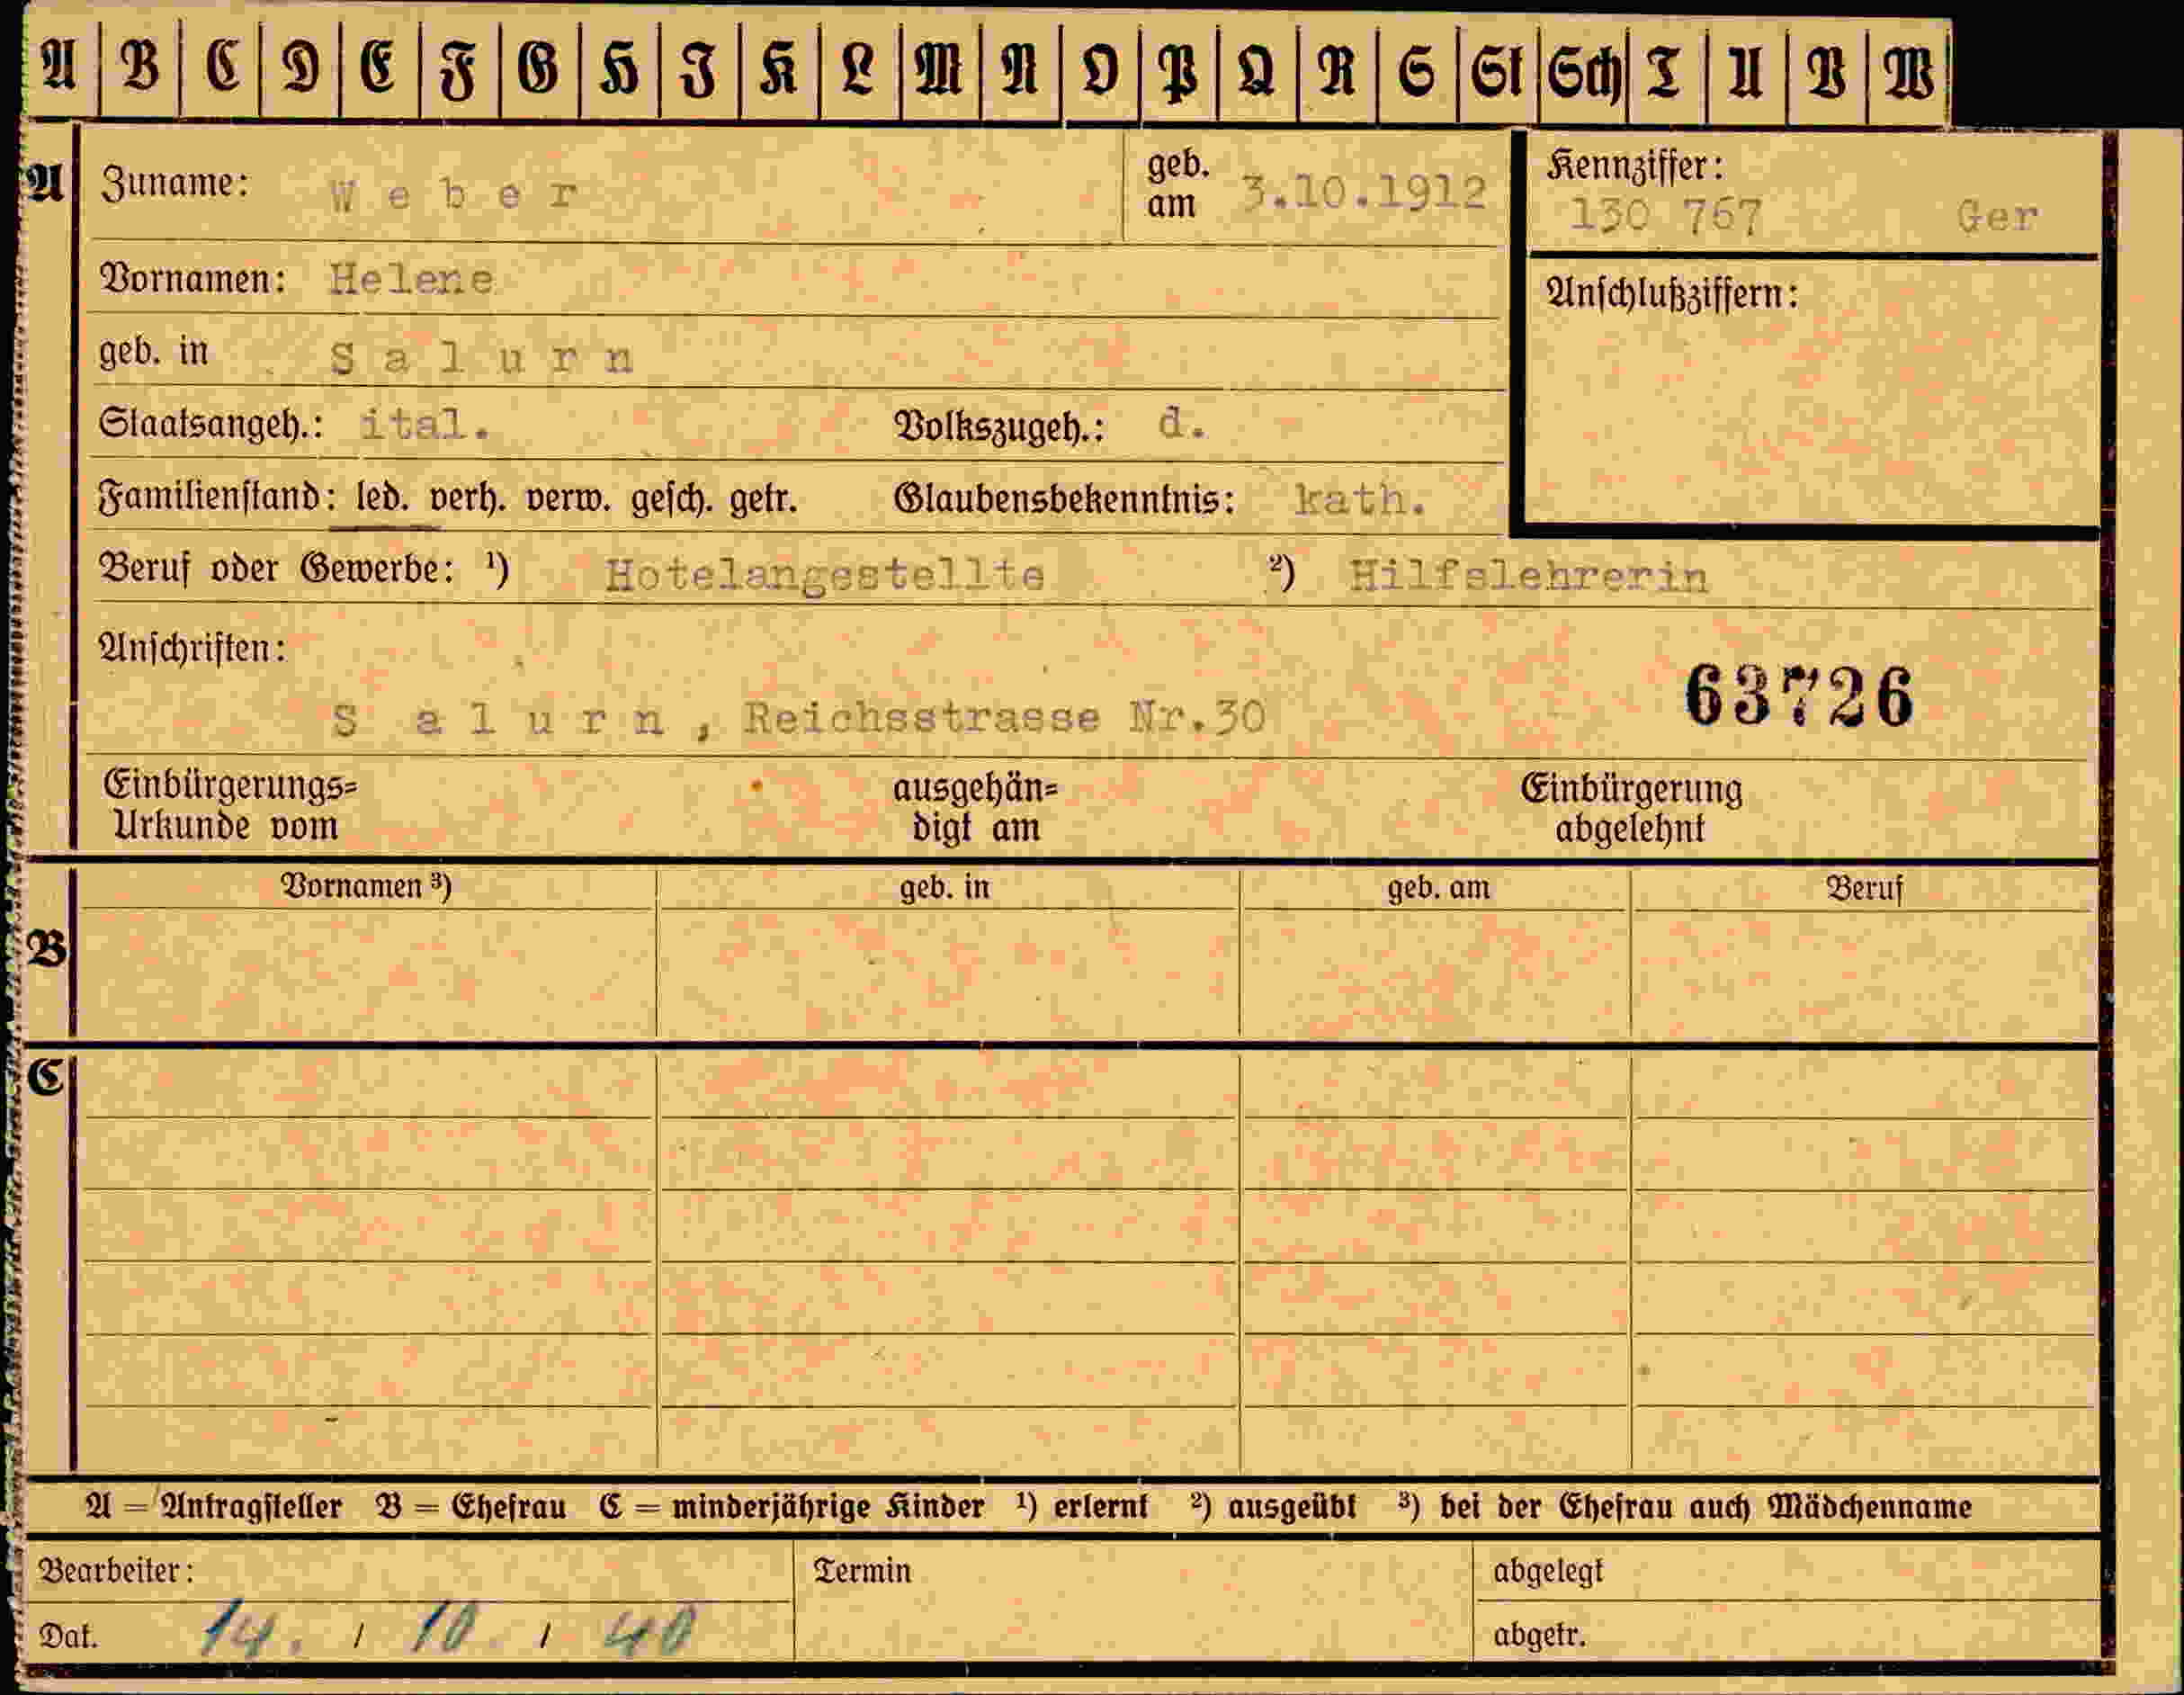 A B C D E F G H I K L M N O P Q R S St Sch T U V W
A Zuname: Weber geb. am 3.10.1912 Kennziffer: 130 767 Ger
Vornamen: Helene Anschlußziffern:
geb. in Salurn
Staatsangeh.: ital. Volkszugeh.: d.
Familienstand: led. verh. verw. gesch. getr. Glaubensbekenntnis: kath.
Beruf oder Gewerbe: ¹) Hotelangestellte ²) Hilfslehrerin
Anschriften:
63726
Salurn, Reichsstrasse Nr.30
Einbürgerungs= ausgehän= Einbürgerung
Urkunde vom digt am abgelehnt
Vornamen ³) geb. in geb. am Beruf
B
C
A = Antragsteller B = Ehefrau C = minderjährige Kinder ¹) erlernt ²) ausgeübt ³) bei der Ehefrau auch Mädchenname
Bearbeiter: Termin abgelegt
Dat. 14. / 10. / 40 abgetr.